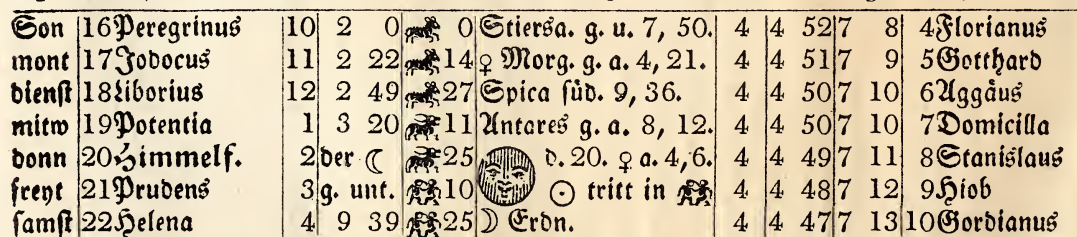 Son 16 Peregrinus 10 2 0 ♈ 0 Stiersa. g. u. 7, 50. 4 4 52 7 8 4 Florianus
mont 17 Jodocus 11 2 22 ♈ 14 ♀ Morg. g. a. 4, 21. 4 4 51 7 9 5 Gotthard
dienst 18 Liborius 12 2 49 ♈ 27 Spica süd. 9, 36. 4 4 50 7 10 6 Aggäus
mitw 19 Potentia 1 3 20 ♉ 11 Antares g. a. 8, 12. 4 4 50 7 10 7 Domicilla
donn 20 Himmelf. 2 der ☾ ♉ 25 d. 20. ♀ a. 4, 6. 4 4 49 7 11 8 Stanislaus
freyt 21 Prudens 3 g. unt. ♊ 10 ☉ tritt in ♊ 4 4 48 7 12 9 Hiob
samst 22 Helena 4 9 39 ♊ 25 ☽ Erdn. 4 4 47 7 13 10 Gordianus